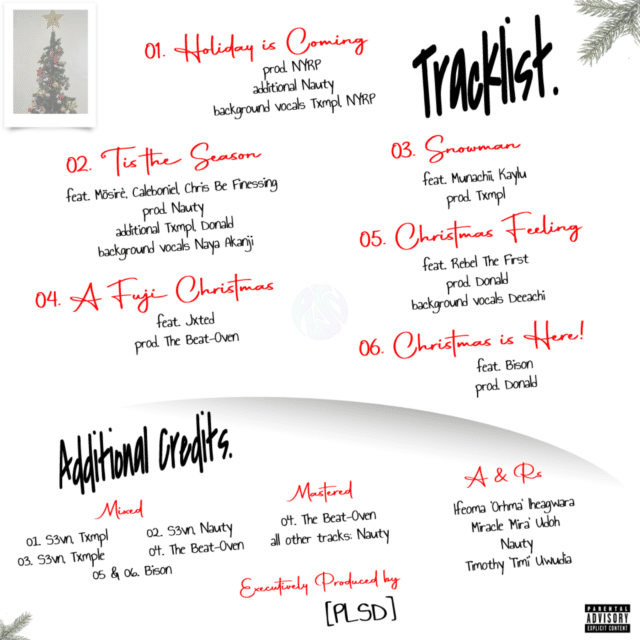 Tracklist.
01. Holiday is Coming
prod. NYRP
additional Nauty
background vocals Txmpl, NYRP
02. 'Tis the Season
feat. Mōsirè, Caleboniel, Chris Be Finessing
prod. Nauty
additional Txmpl, Donald
background vocals Naya Akanji
03. Snowman
feat. Munachii, Kaylu
prod. Txmpl
04. A Fuji Christmas
feat. Jxted
prod. The Beat-Oven
05. Christmas Feeling
feat. Rebel The First
prod. Donald
background vocals Deeachi
06. Christmas is Here!
feat. Bison
prod. Donald
Additional Credits.
Mixed
01. S3vn, Txmpl
02. S3vn, Nauty
03. S3vn, Txmple
04. The Beat-Oven
05 & 06. Bison
Mastered
04. The Beat-Oven
all other tracks: Nauty
A & Rs
Ifeoma 'Orhma' Iheagwara
Miracle 'Mira' Udoh
Nauty
Timothy 'Timi' Uwudia
Executively Produced by
[PLSD]
PARENTAL
ADVISORY
EXPLICIT CONTENT